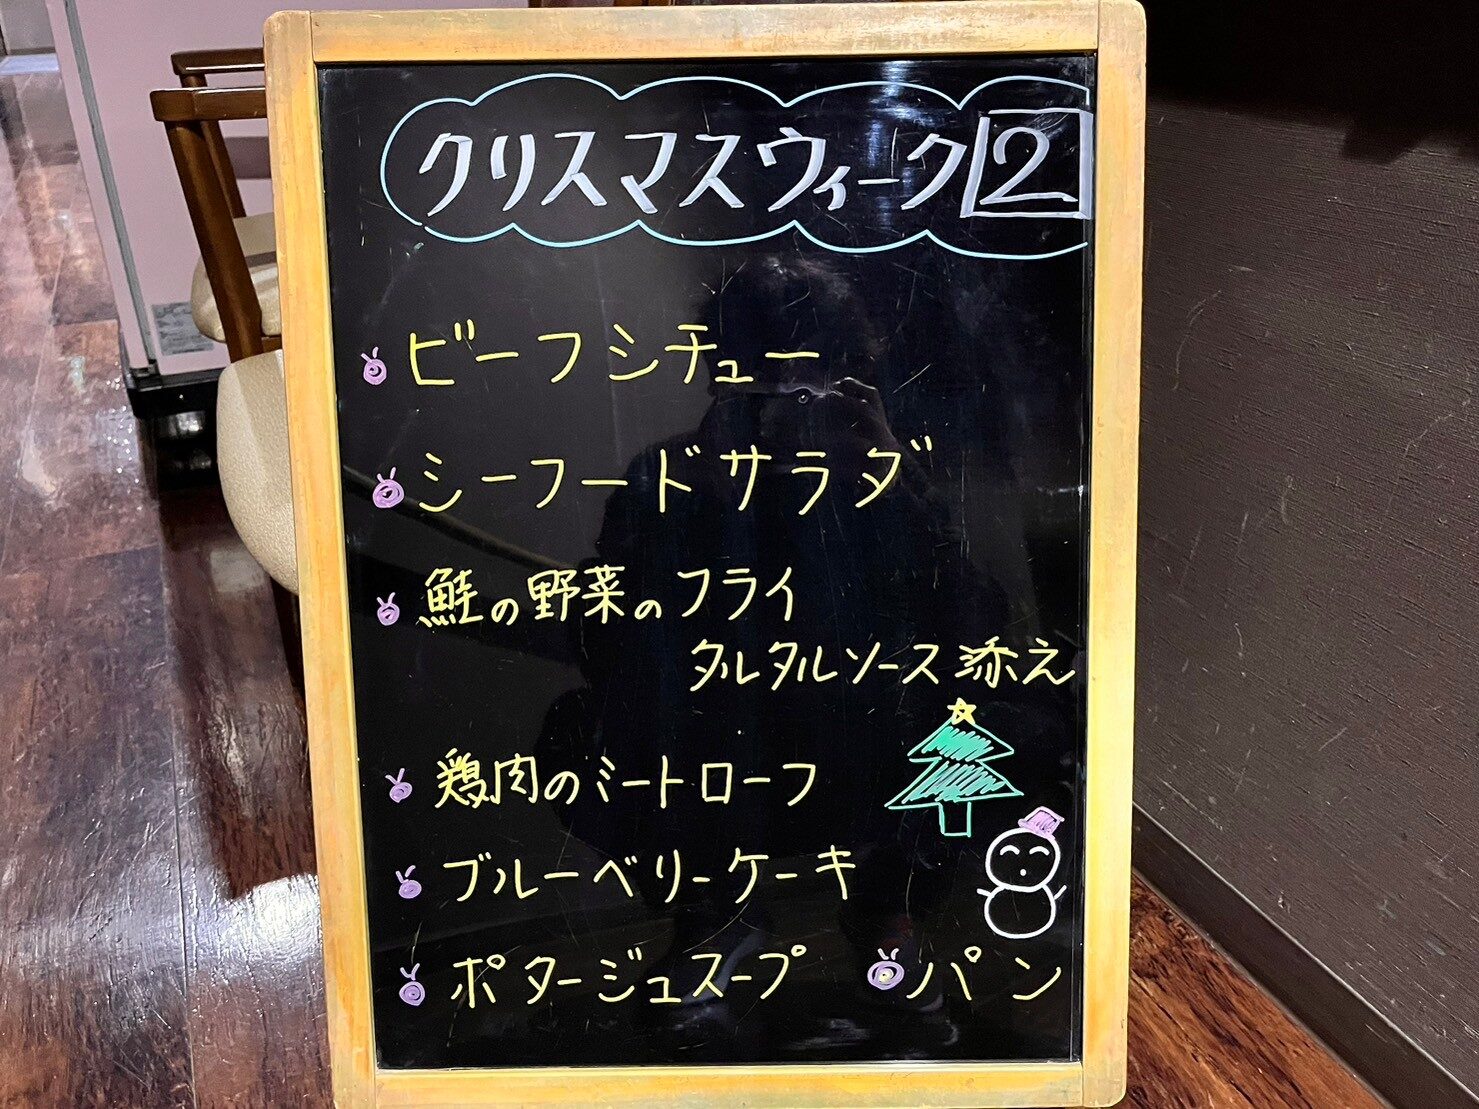 クリスマスウィーク2
ビーフシチュー
シーフードサラダ
鮭の野菜のフライ
タルタルソース添え
鶏肉のミートローフ
ブルーベリーケーキ
ポタージュスープ パン